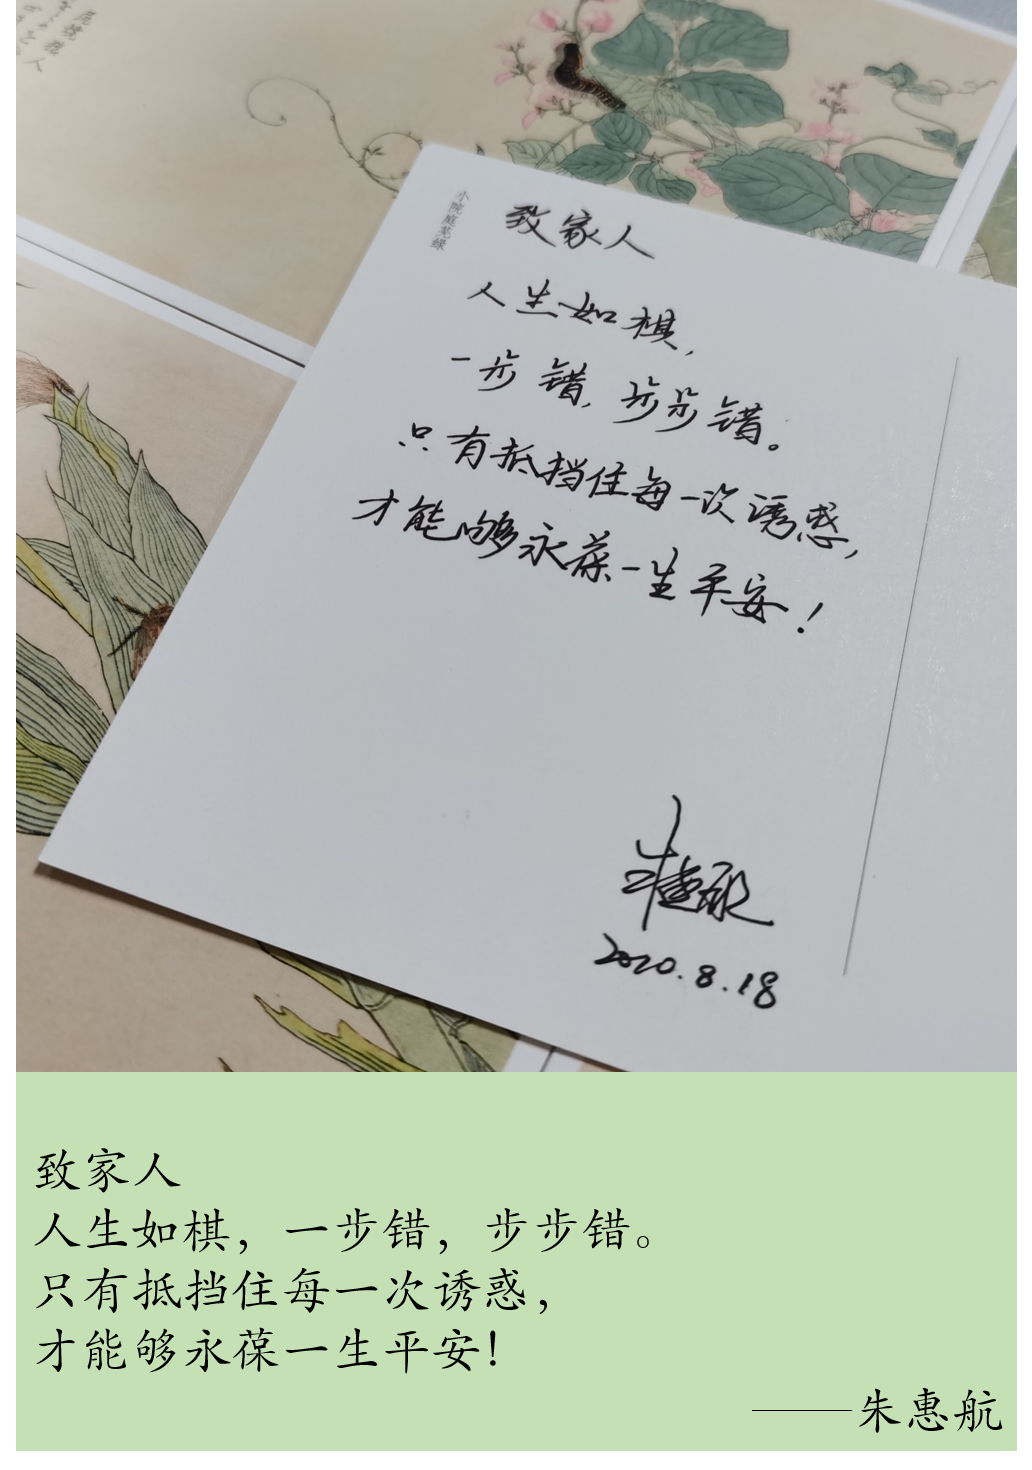 小院庭芜绿
致家人
人生如棋,
一步错,步步错。
只有抵挡住每一次诱惑,
才能够永葆一生平安!
朱惠航
2020.8.18
致家人
人生如棋，一步错，步步错。
只有抵挡住每一次诱惑，
才能够永葆一生平安！
——朱惠航